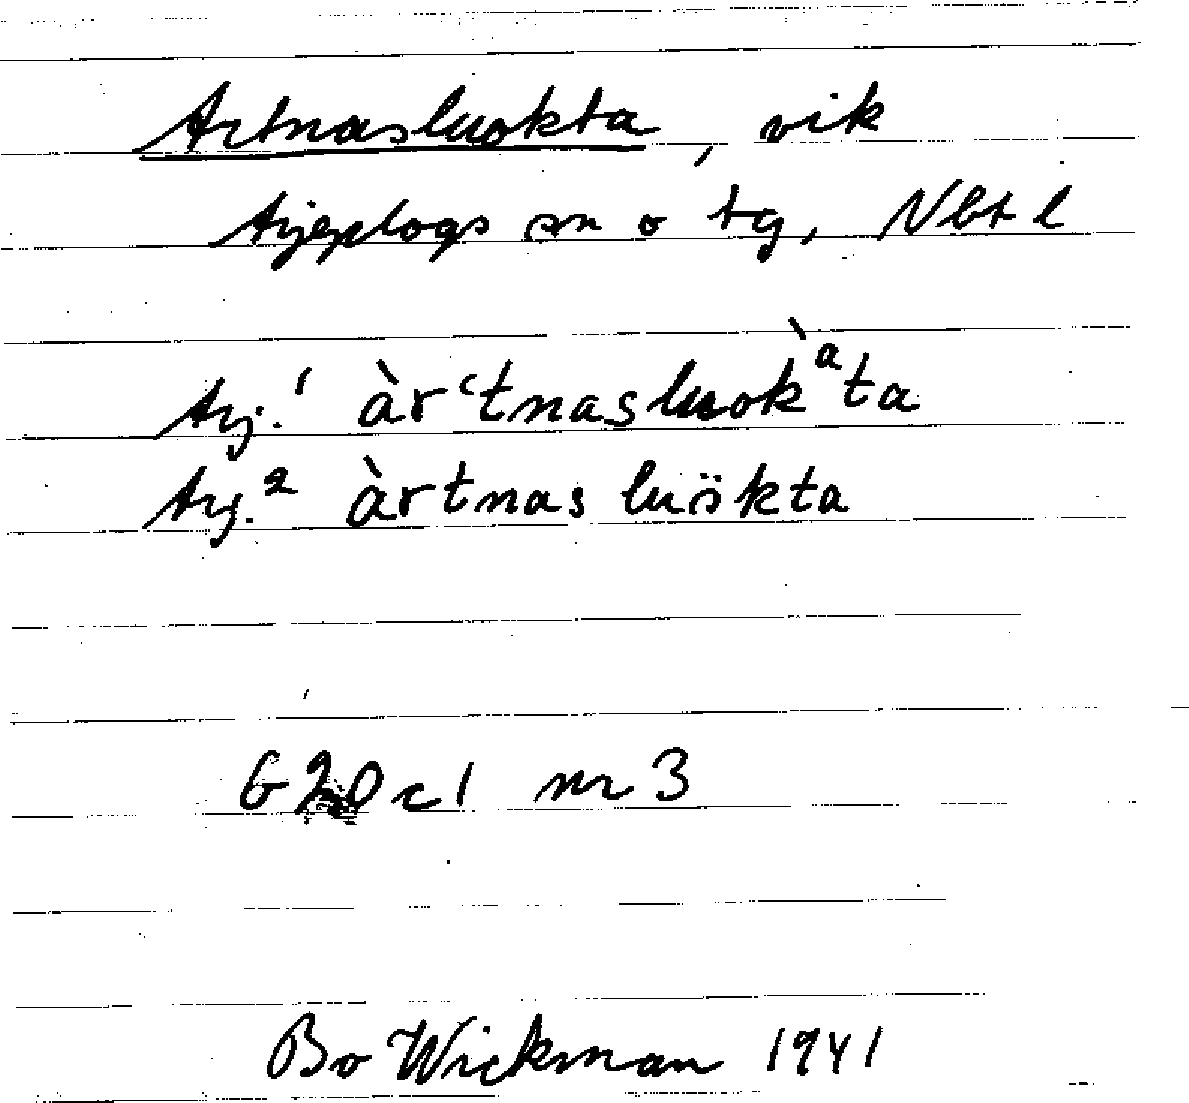 Artnasluokta, vik
Arjeplogs sn o tg, Nbt l
Arj.¹ àrʿtnasluok̀ᵃta
Arj.² àrtnasluökta
G20c1 nr 3
Bo Wickman 1941